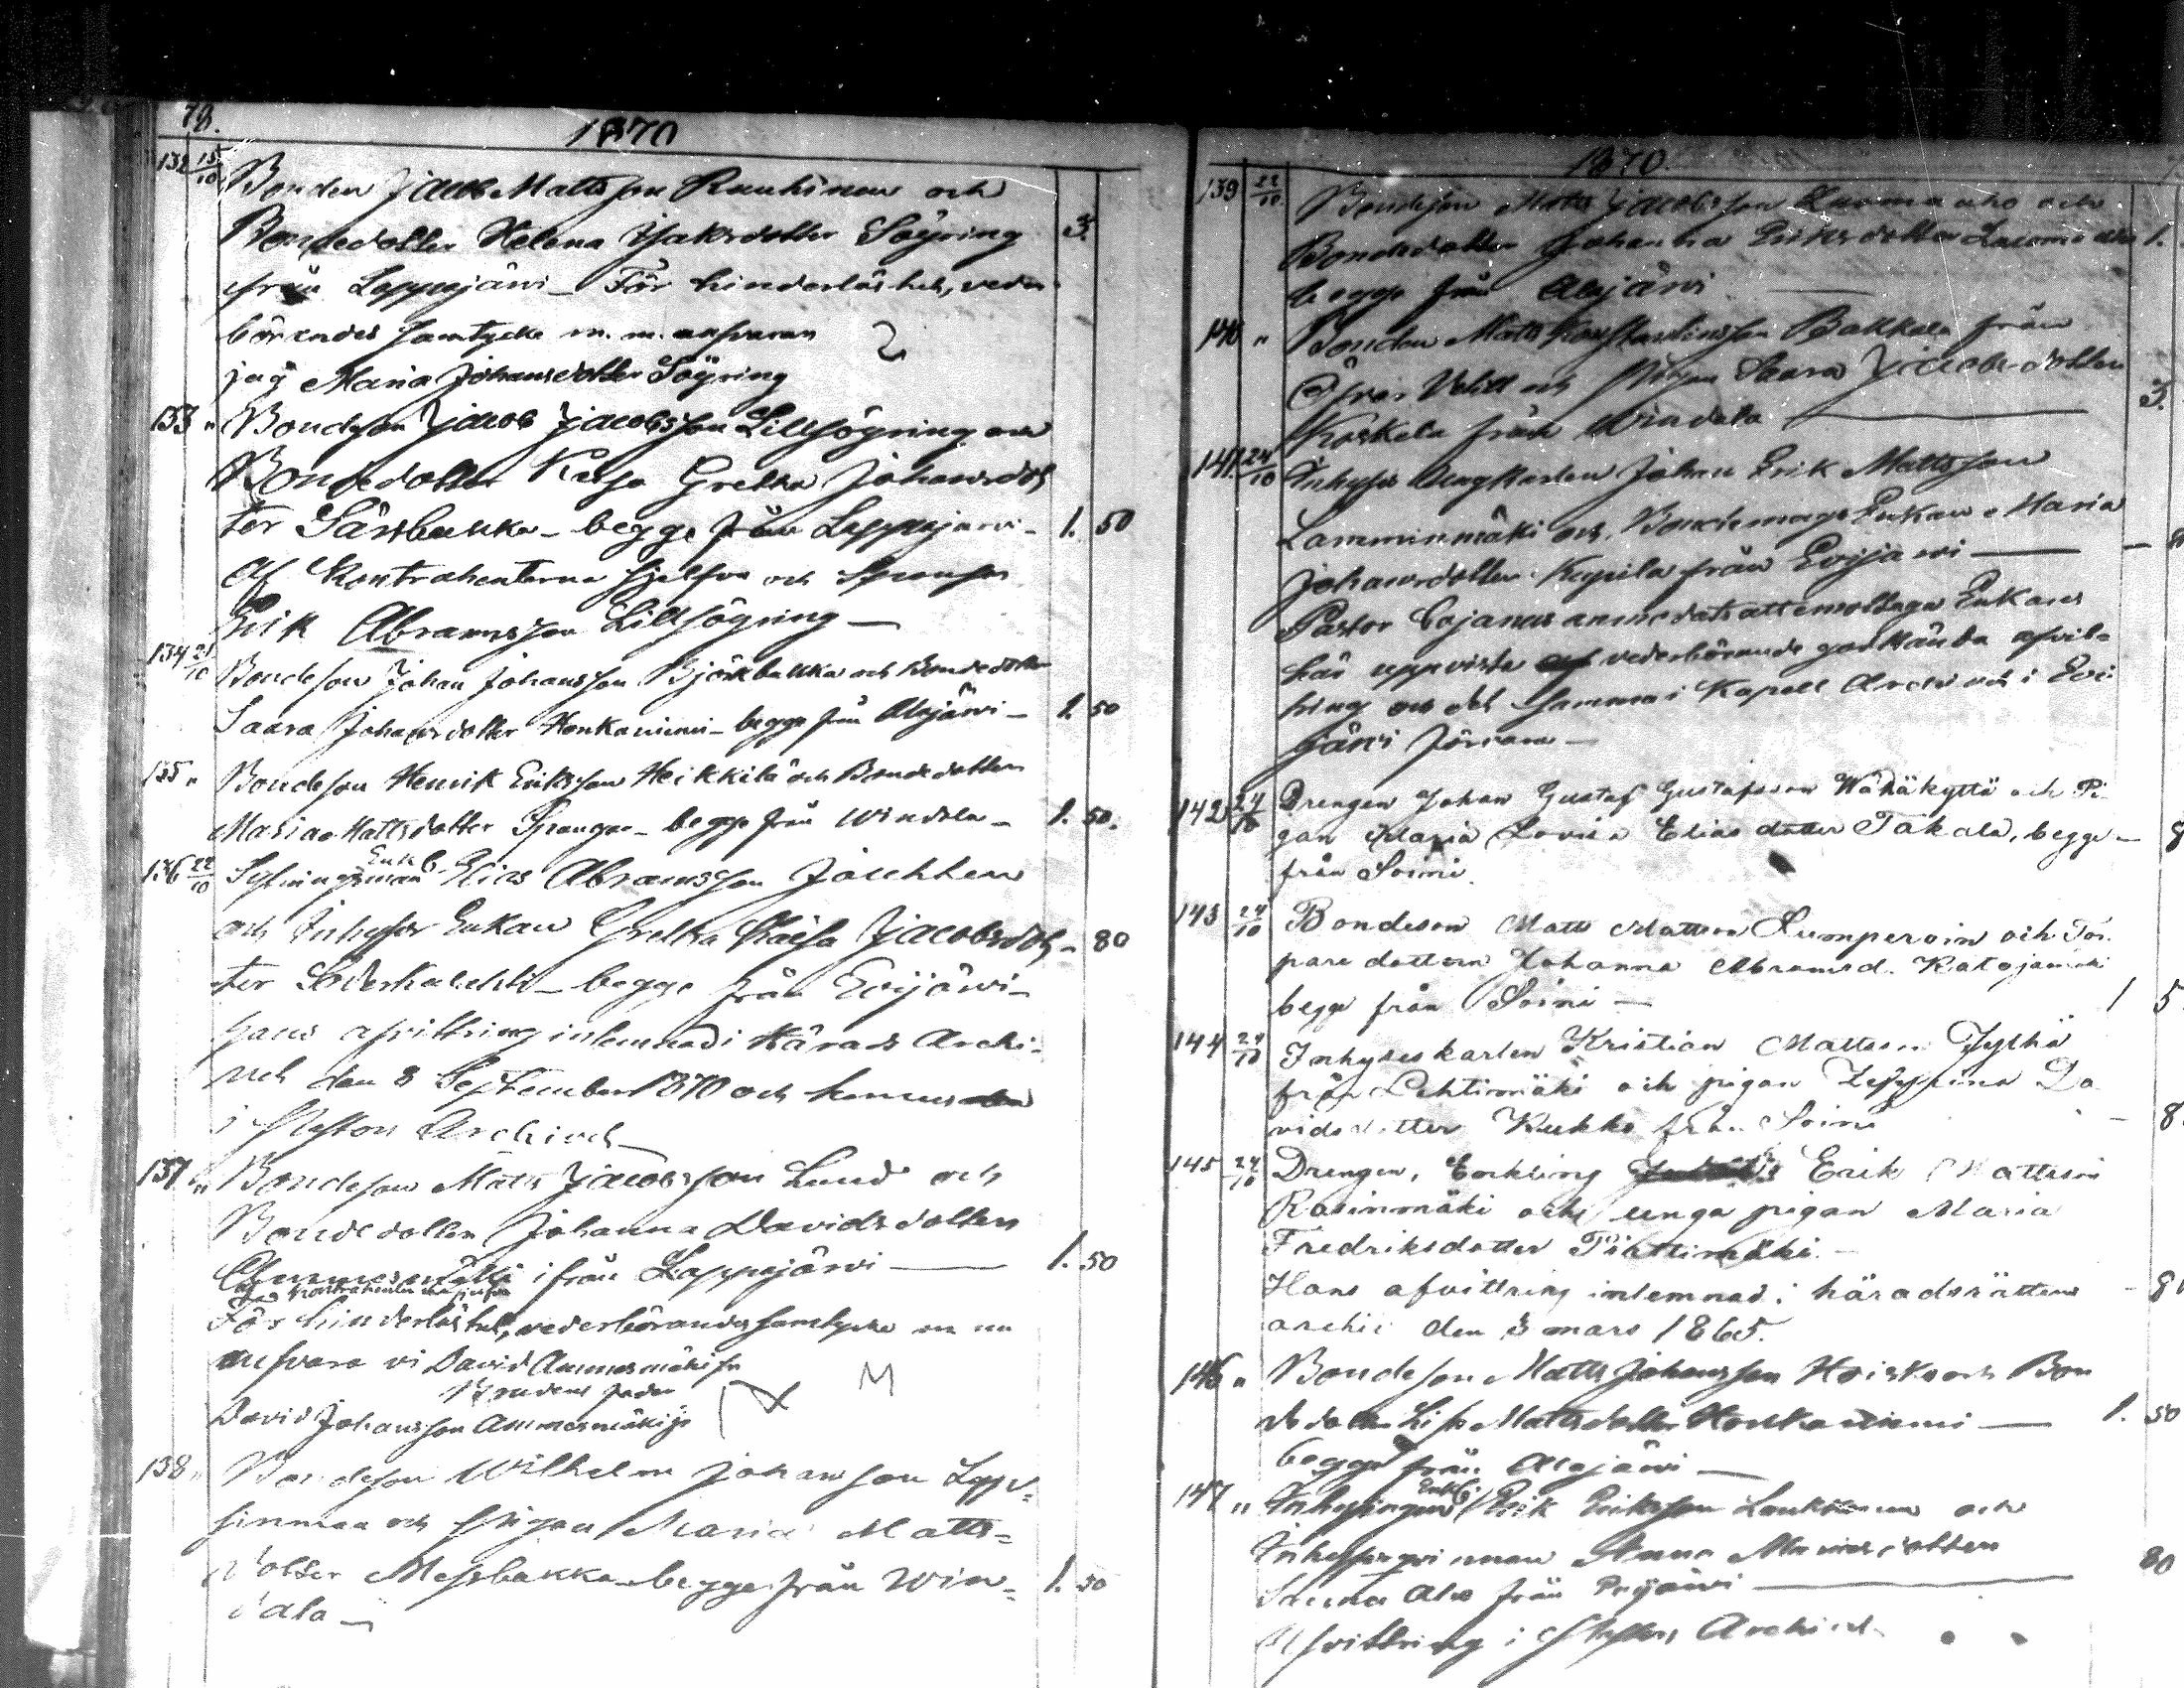 78.
1870
132 15/10 Bonden Jacob Mattsson Kauhinen och
Bondedotter Helena Isaksdotter Sögring 3.
från Lappajärwi – För hinderlöshet, veder-
börandes samtycke m. m. ansvarar
jag Maria Johansdotter Sögring
133 " Bondeson Jacob Jacobsson Lillsögring och
Bondedotter Kaisa Gretha Johansdot-
ter Särsbakka – begge från Lappajärwi – 1. 50
Af Kontrahenterna sjelfva och
Erik Abramsson Lillsögring –
134 21/10 Bondeson Johan Johansson Björkbakka och Bondedotter
Saara Johansdotter Honkaniemi – begge från Alajärwi – 1. 50
135 " Bondeson Henrik Eriksson Heikkilä och Bondedotter
Maria Mattsdotter Spangar – begge från Windala – 1. 50.
136 22/10 Sytningsman Enkl. Elias Abramsson
och Inhyses Enkan Gretha Kaisa Jacobsdot- – 80
ter – begge från Evijärwi –
hans afvittring inlemnad i Härads Archi-
vet den 8 September 1870 och hennes
i Archivet –
137 " Bondeson Matts Jacobsson Lund och
Bondedotter Johanna Davidsdotter
Ammesmäki ifrån Lappajärwi — 1. 50
För hinderlöshet, vederbörandes samtycke m m
ansvara vi David Ammesmäki
Brudens fader
David Johansson Ammesmäki
138 " Bondeson Wilhelm Johansson
och Pigan Maria Matts-
dotter Mesibakka – begge från Win- 1. 50
dala –
1870.
139 22/10 Bondeson Matts Jacobsson Luoma aho och
Bondedotter Johanna Eriksdotter 1.
begge från Alajärwi —
140 " Bonden Matts Konstantinsson Bakkala från
Öfver Vetill och Pigan Saara Jacobsdotter 3.
Koskela från Windala —
141. 24/10 Inhyses Ungkarlen Johan Erik Mattsson
Lamminmäki och Bondemags Enkan Maria
Johansdotter från Evijärwi —
Pastor Cajanus anmodats att emottaga Enkans
här uppvista af vederbörande godkända afvitt-
ring och det samma i Kapell Archivet i Evi-
järwi förvara –
142 24/10 Drengen Johan Gustaf Gustafsson Wähäkyttä och Pi-
gan Maria Lovisa Eliasdotter Takala, begge – 8
från Soini.
143 24/10 Bondeson Matts Mattson Lumperoin och Tor-
paredottern Johanna Abramsd. Katajamäki
begge från Soini – 1 5
144 24/10 Inhyseskarlen Kristian Mattsson Jylhä
från Lehtimäki och pigan Zefanna Da-
vidsdotter Kukko från Soini – 8
145 24/10 Drengen, Enkling Erik Mattsson
Rasinmäki och unga pigan Maria
Fredriksdotter Pihttimäki. –
Hans afvittring inlemnad i häradsrättens – 8
archiv den 3 mars 1865.
146 " Bondeson Matts Johansson Hoisko och Bon
dedotter Lisa Mattsdotter Honkaniemi — 1. 50
begge från Alajärwi —
147 " Inhysingen Enkl. Erik Eriksson Loukkonen och
Inhyses qvinnan Anna Mariasdotter 80
från Evijärwi —
Afvittring i Archivet.